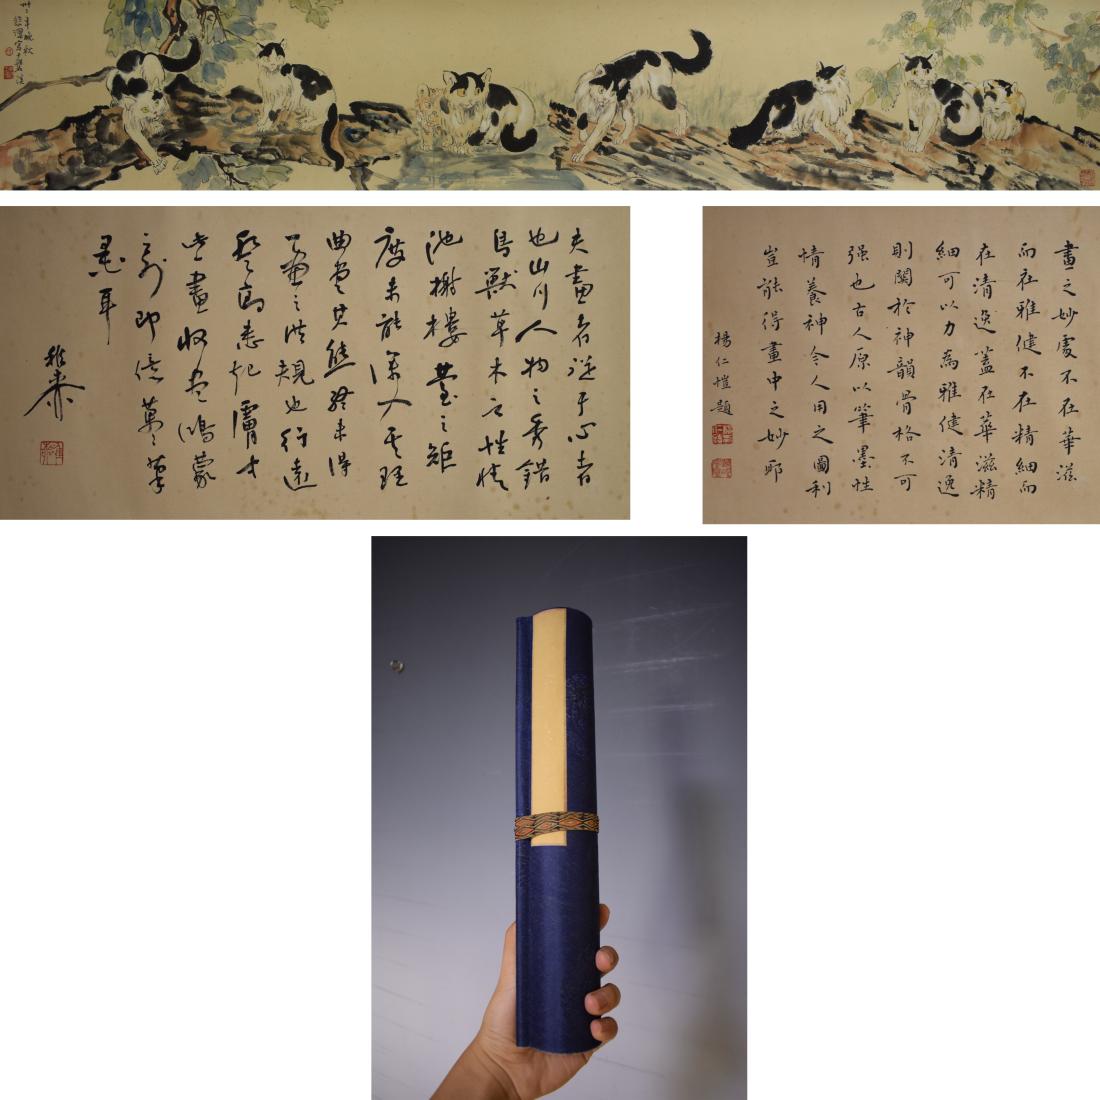 卅二年晚秋
悲鴻寫于磐溪
夫畫者從于心者
也山川人物之秀錯
鳥獸草木之性情
池榭樓臺之矩
度未能深入其理
曲盡其態終未得
一畫之洪規也行遠
登高悉起膚寸
此畫收盡鴻蒙
之外即億萬萬筆
墨耳
雅泰
畫之妙處不在華滋
而在雅健不在精細而
在清逸蓋在華滋精
細可以力為雅健清逸
則關於神韻骨格不可
强也古人原以筆墨性
情養神令人用之圖利
豈能得畫中之妙耶
楊仁愷題